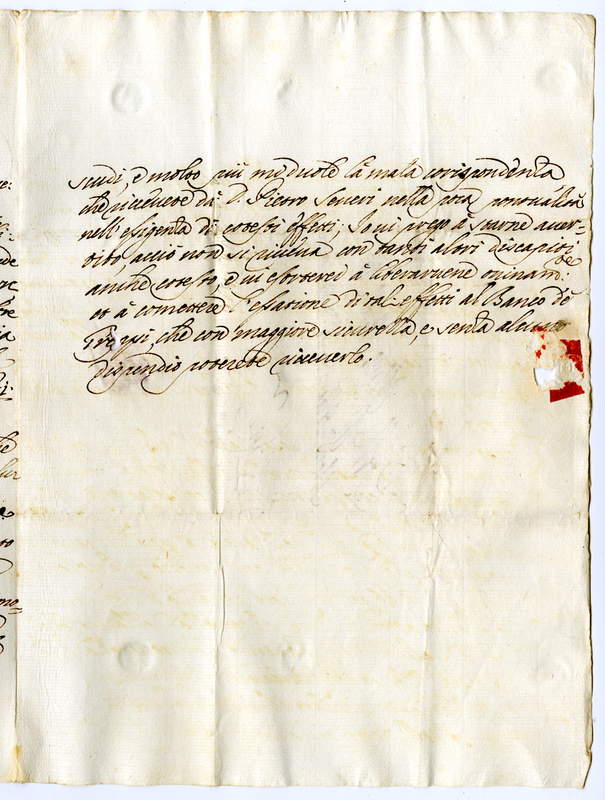 scudi, e molto più mi duole la mala corrispondenza
che ricevete da D. Pietro Severi nella poca pontualità
nell'esigenza di cotesti effetti; Io vi prego à starne aver-
tito, acciò non si riceva con tanti altri discapiti
anche cotesto, e vi esorterei à liberarvene
et à comettere l'esatione di tali effetti al Banco de
che con maggiore sicurezza, e senza alcuno
dispendio potrete riceverlo.